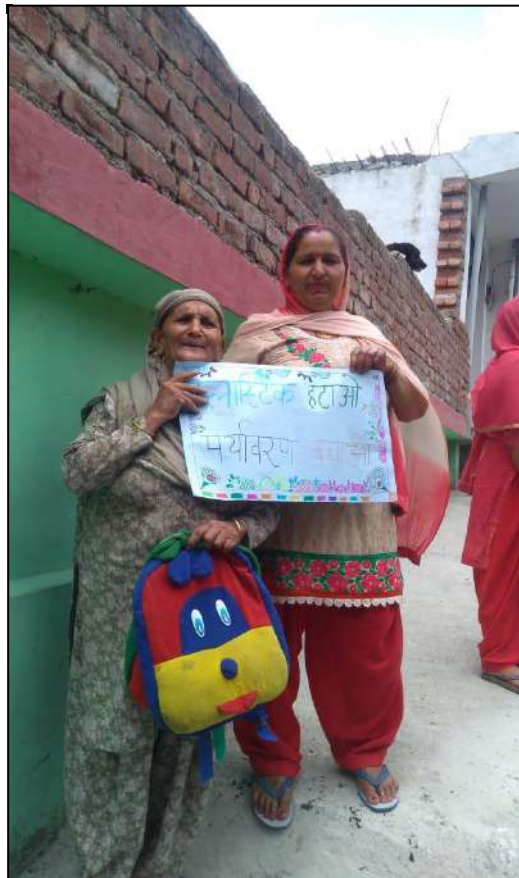 प्लास्टिक हटाओ
पर्यावरण बचाओ